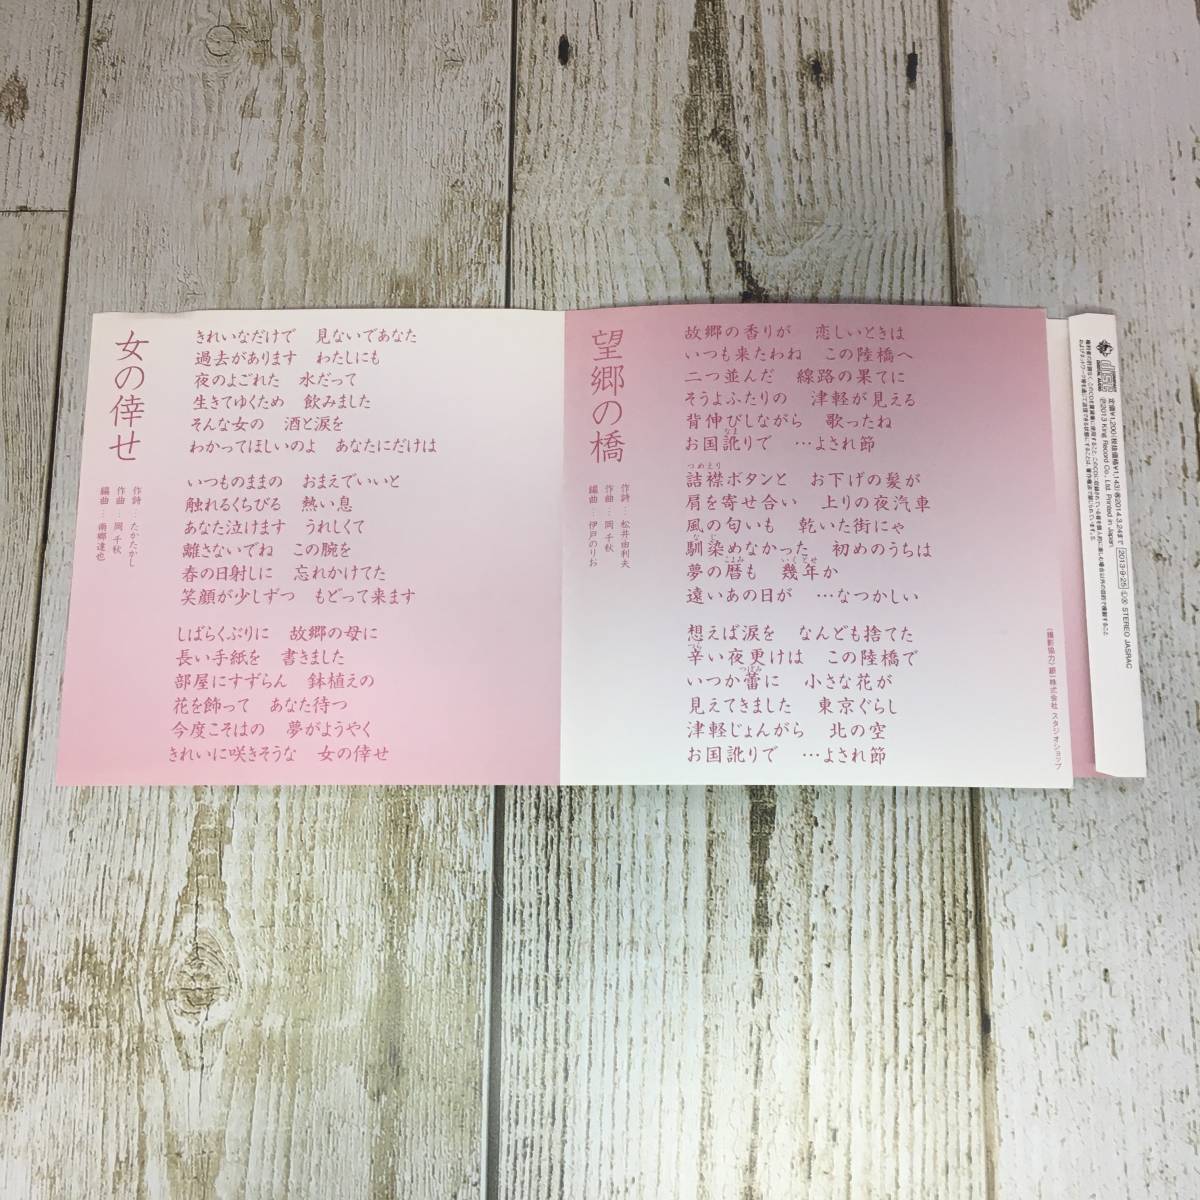 女の倖せ
作詩…たかたかし
作曲…岡 千秋
編曲…南郷達也
きれいなだけで 見ないであなた
過去があります わたしにも
夜のよごれた 水だって
生きてゆくため 飲みました
そんな女の 酒と涙を
わかってほしいのよ あなたにだけは
いつものままの おまえでいいと
触れるくちびる 熱い息
あなた泣けます うれしくて
離さないでね この腕を
春の日射しに 忘れかけてた
笑顔が少しずつ もどって来ます
しばらくぶりに 故郷の母に
長い手紙を 書きました
部屋にすずらん 鉢植えの
花を飾って あなた待つ
今度こそはの 夢がようやく
きれいに咲きそうな 女の倖せ
望郷の橋
作詩…松井由利夫
作曲…岡 千秋
編曲…伊戸のりお
故郷の香りが 恋しいときは
いつも来たわね この陸橋へ
二つ並んだ 線路の果てに
そうよふたりの 津軽が見える
背伸びしながら 歌ったね
なまり
お国訛りで …よされ節
つめえり
詰襟ボタンと お下げの髪が
肩を寄せ合い 上りの夜汽車
風の匂いも 乾いた街にゃ
なじ
馴染めなかった 初めのうちは
こよみ いくとせ
夢の暦も 幾年か
遠いあの日が …なつかしい
想えば涙を なんども捨てた
つら
辛い夜更けは この陸橋で
つぼみ
いつか蕾に 小さな花が
見えてきました 東京ぐらし
津軽じょんがら 北の空
お国訛りで …よされ節
(撮影協力)銀)株式会社 スタジオショップ
定価¥1,200(税抜価格¥1,143)再2014.3.24まで 2013・9・25 STEREO JASRAC
Ⓟ2013 King Record Co., Ltd. Printed in Japan.